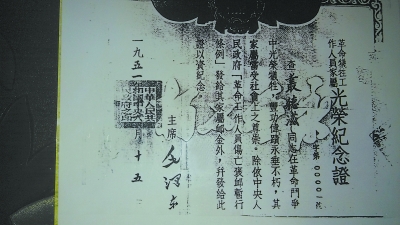 革命犧牲工
作人員家屬
光榮紀念證
字第0000一號
查
同志在革命鬥爭
中光榮犧牲，豐功偉蹟永垂不朽，其
家屬當受社會上之尊崇。除依中央人
民政府「革命工作人員傷亡褒卹暫行
條例」發給其家屬卹金外，幷發給此
證以資紀念。
主席
毛澤東
一九五一
十五